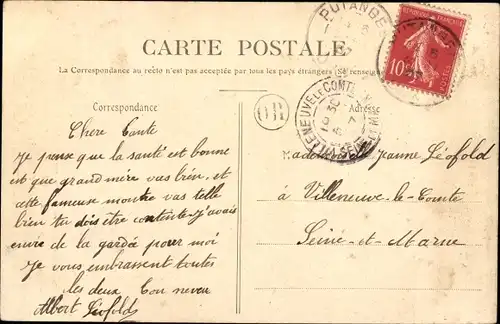 CARTE POSTALE
La Correspondance au recto n'est pas acceptée par tous les pays étrangers (Se renseigner
Correspondance
Adresse
PUTANGE
RÉPUBLIQUE FRANÇAISE
10
OR
VILLENEUVE LE COMTE
SEINE ET M
Chere Tante
Je pense que la santé est bonne
est que grand mére vas bien, et
cette fameuse montre vas telle
bien tu dois être contente j'avais
envie de la gardée pour moi
Je vous embrassent toutes
les deux Ton neveu
Albert Léofold
Jeanne Léofold
à Villeneuve-le-Comte
Seine-et-Marne